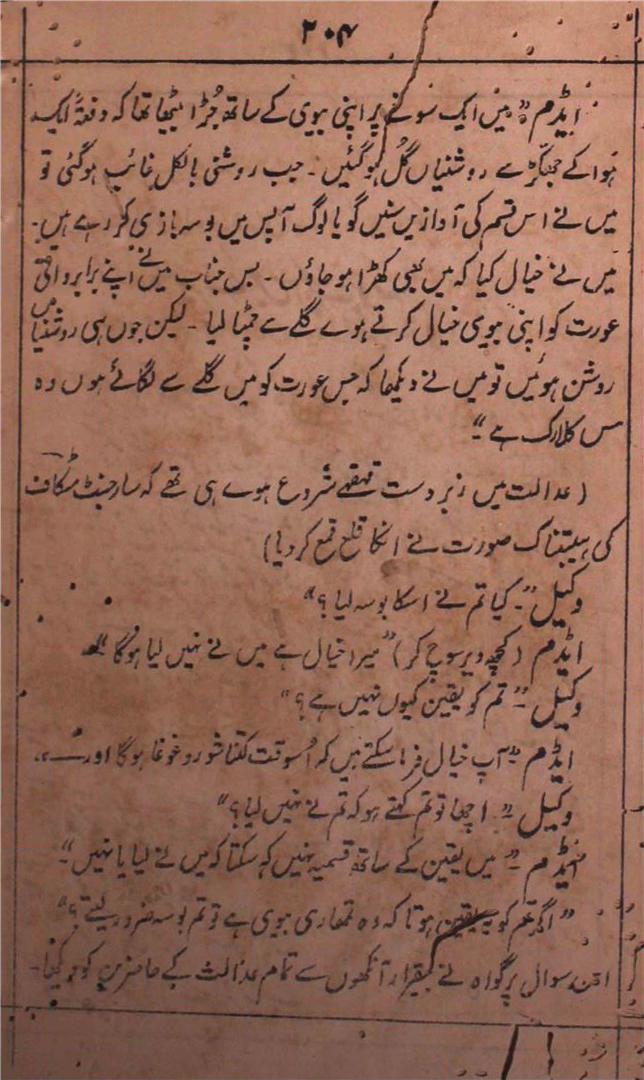 ۲۰۴
ایڈم “ میں ایک سونے پر اپنی بیوی کے ساتھ جُڑا بیٹھا تھا کہ دفعۃً ایک
ہوا کے جھکڑ سے روشنیاں گُل ہو گئیں ۔ جب روشنی بالکل غائب ہوگئی تو
میں نے اس قسم کی آوازیں سنیں گویا لوگ آپس میں بوسہ بازی کر رہے ہیں۔
میں نے خیال کیا کہ میں بھی کھڑا ہو جاؤں ۔ بس جناب میں نے اپنے برابر والی
عورت کو اپنی بیوی خیال کرتے ہوے گلے سے چمٹا لیا ۔ لیکن جوں ہی روشنیاں
روشن ہوئیں تو میں نے دیکھا کہ جس عورت کو میں گلے سے لگائے ہوں وہ
مس کلارک ہے “
( عدالت میں زبردست قہقہے شروع ہوے ہی تھے کہ سارجنٹ مٹکاف
کی ہیبتناک صورت نے انکا قلع قمع کر دیا )
وکیل “۔ کیا تم نے اسکا بوسہ لیا ؟ “
ایڈم ( کچھ دیر سوچ کر ) “ میرا خیال ہے میں نے نہیں لیا ہوگا “
وکیل “ تم کو یقین کیوں نہیں ہے ؟ “
ایڈم “ آپ خیال فرما سکتے ہیں کہ اُسوقت کتنا شور و غوغا ہوگا اور ـــــ “
وکیل “۔ اچھا تو تم کہتے ہو کہ تم نے نہیں لیا ؟ “
ایڈم “ میں یقین کے ساتھ قسمیہ نہیں کہ سکتا کہ میں نے لیا یا نہیں “
“ اگر تم کو یہ یقین ہوتا کہ وہ تمھاری بیوی ہے تو تم بوسہ ضرور لیتے ؟ “
اس سوال پر گواہ نے بیقرار آنکھوں سے تمام عدالت کے حاضرین کو دیکھا۔